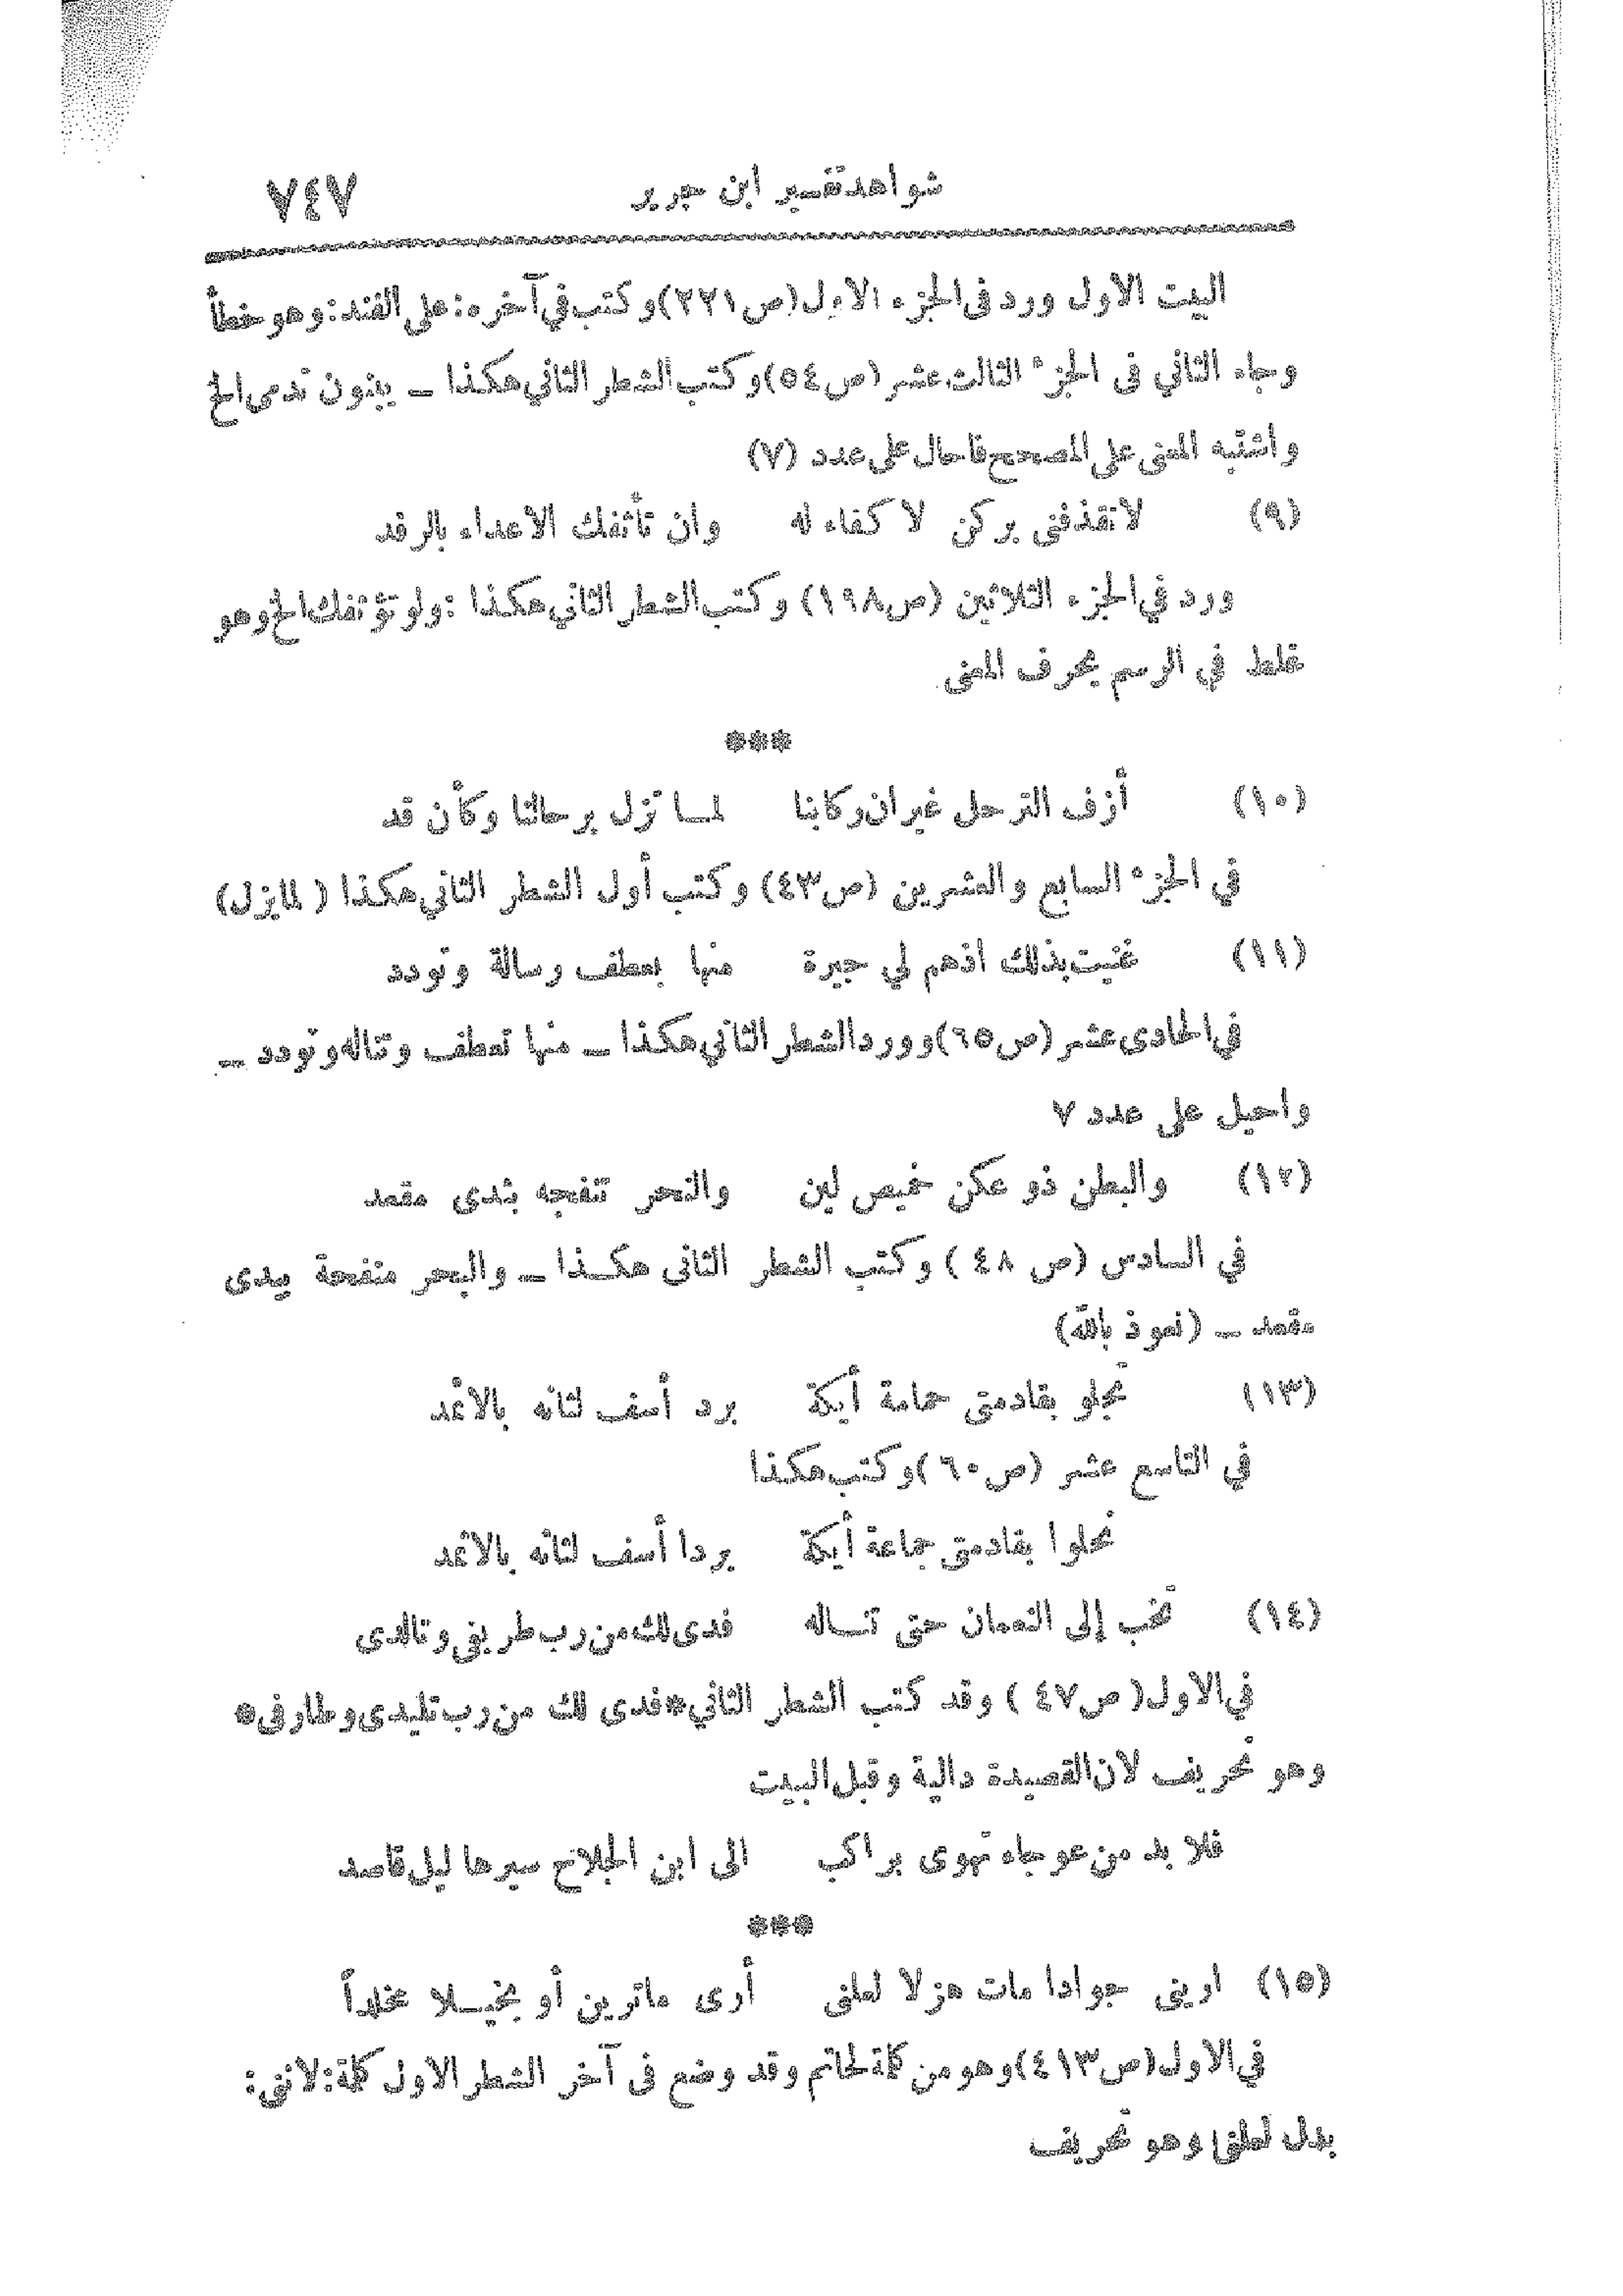 شواهد تفسير ابن جرير ٧٤٧
البيت الاول ورد فى الجزء الاول (ص ٢٢١) وكتب في آخره: على الفند: وهو خطأ
وجاء الثاني فى الجزء الثالث عشر (ص ٥٤) وكتب الشطر الثاني هكذا ـ يبنون تدمى الخ
واشتبه المعنى على المصحح فاحال على عدد (٧)
(٩) لاتقذفنى بركن لا كفاء له وان تأثفك الاعداء بالرفد
ورد في الجزء الثلاثين (ص ١٩٨) وكتب الشطر الثاني هكذا: ولو تؤثفك الخ وهو
غلط في الرسم يحرف المعنى
***
(١٠) أزف الترحل غير ان ركابنا لمـا تزل برحالنا وكأن قد
في الجزء السابع والعشرين (ص ٤٣) وكتب أول الشطر الثاني هكذا (لمايزل)
(١١) غنيت بذلك اذهم لي جيرة منها بعطف رسالة وتودد
في الحادى عشر (ص ٦٥) وورد الشطر الثاني هكذا ـ منها تعطف وتناله وتودد ـ
واحيل على عدد ٧
(١٢) والبطن ذو عكن خميص لين والنحر تنفجه بثدى مقعد
في السادس (ص ٤٨) وكتب الشطر الثانى هكـذا ـ والبحر منفحة بيدى
مقعد ـ (نعوذ بالله)
(١٣) تجلو بقادمتى حمامة أيكة برد أسف لثاته بالاثمد
في التاسع عشر (ص ٦٠) وكتب هكذا
نحلوا بقادمتى جماعة أيكة بردا أسف لثاته بالاثمد
(١٤) تخب إلى النعمان حتى تنـاله فدى لك من رب طريفى وتالدى
في الاول (ص ٤٧) وقد كتب الشطر الثاني *فدى لك من رب تليدى وطارفى*
وهو تحريف لان القصيدة دالية وقبل البيت
فلا بد من عوجاء تهوى براكب الى ابن الجلاح سيرها ليل قاصد
***
(١٥) ارينى جوادا مات هزلا لعلنى أرى ماترين أو بخيـلا مخلداً
في الاول (ص ٤١٣) وهو من كلمة لحاتم وقد وضع فى آخر الشطر الاول كلمة: لاننى:
بدل لعلنى وهو تحريف